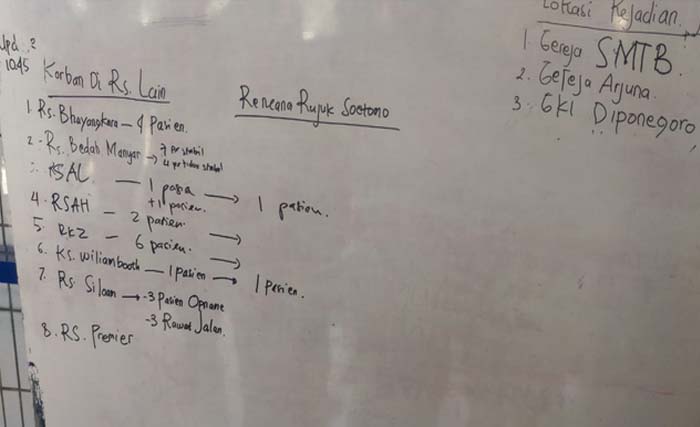 Upd :2
10.45
Korban Di Rs. Lain
1. Rs. Bhayangkara - 4 Pasien.
2. Rs. Bedah Manyar → 7 px stabil
4 px tidak stabil
3. RSAL — 1 pasien → 1 pasien.
+1 pasien.
4. RSAH - 2 pasien. →
5. RKZ - 6 pasien. →
6. Rs. wilianbooth — 1 pasien → 1 pasien.
7. Rs. Siloan → -3 Pasien Opname
-3 Rawat Jalan.
8. RS. Premier
Rencana Rujuk Soetomo
Lokasi Kejadian
1. Gereja SMTB.
2. Gereja Arjuna.
3. GKI Diponegoro